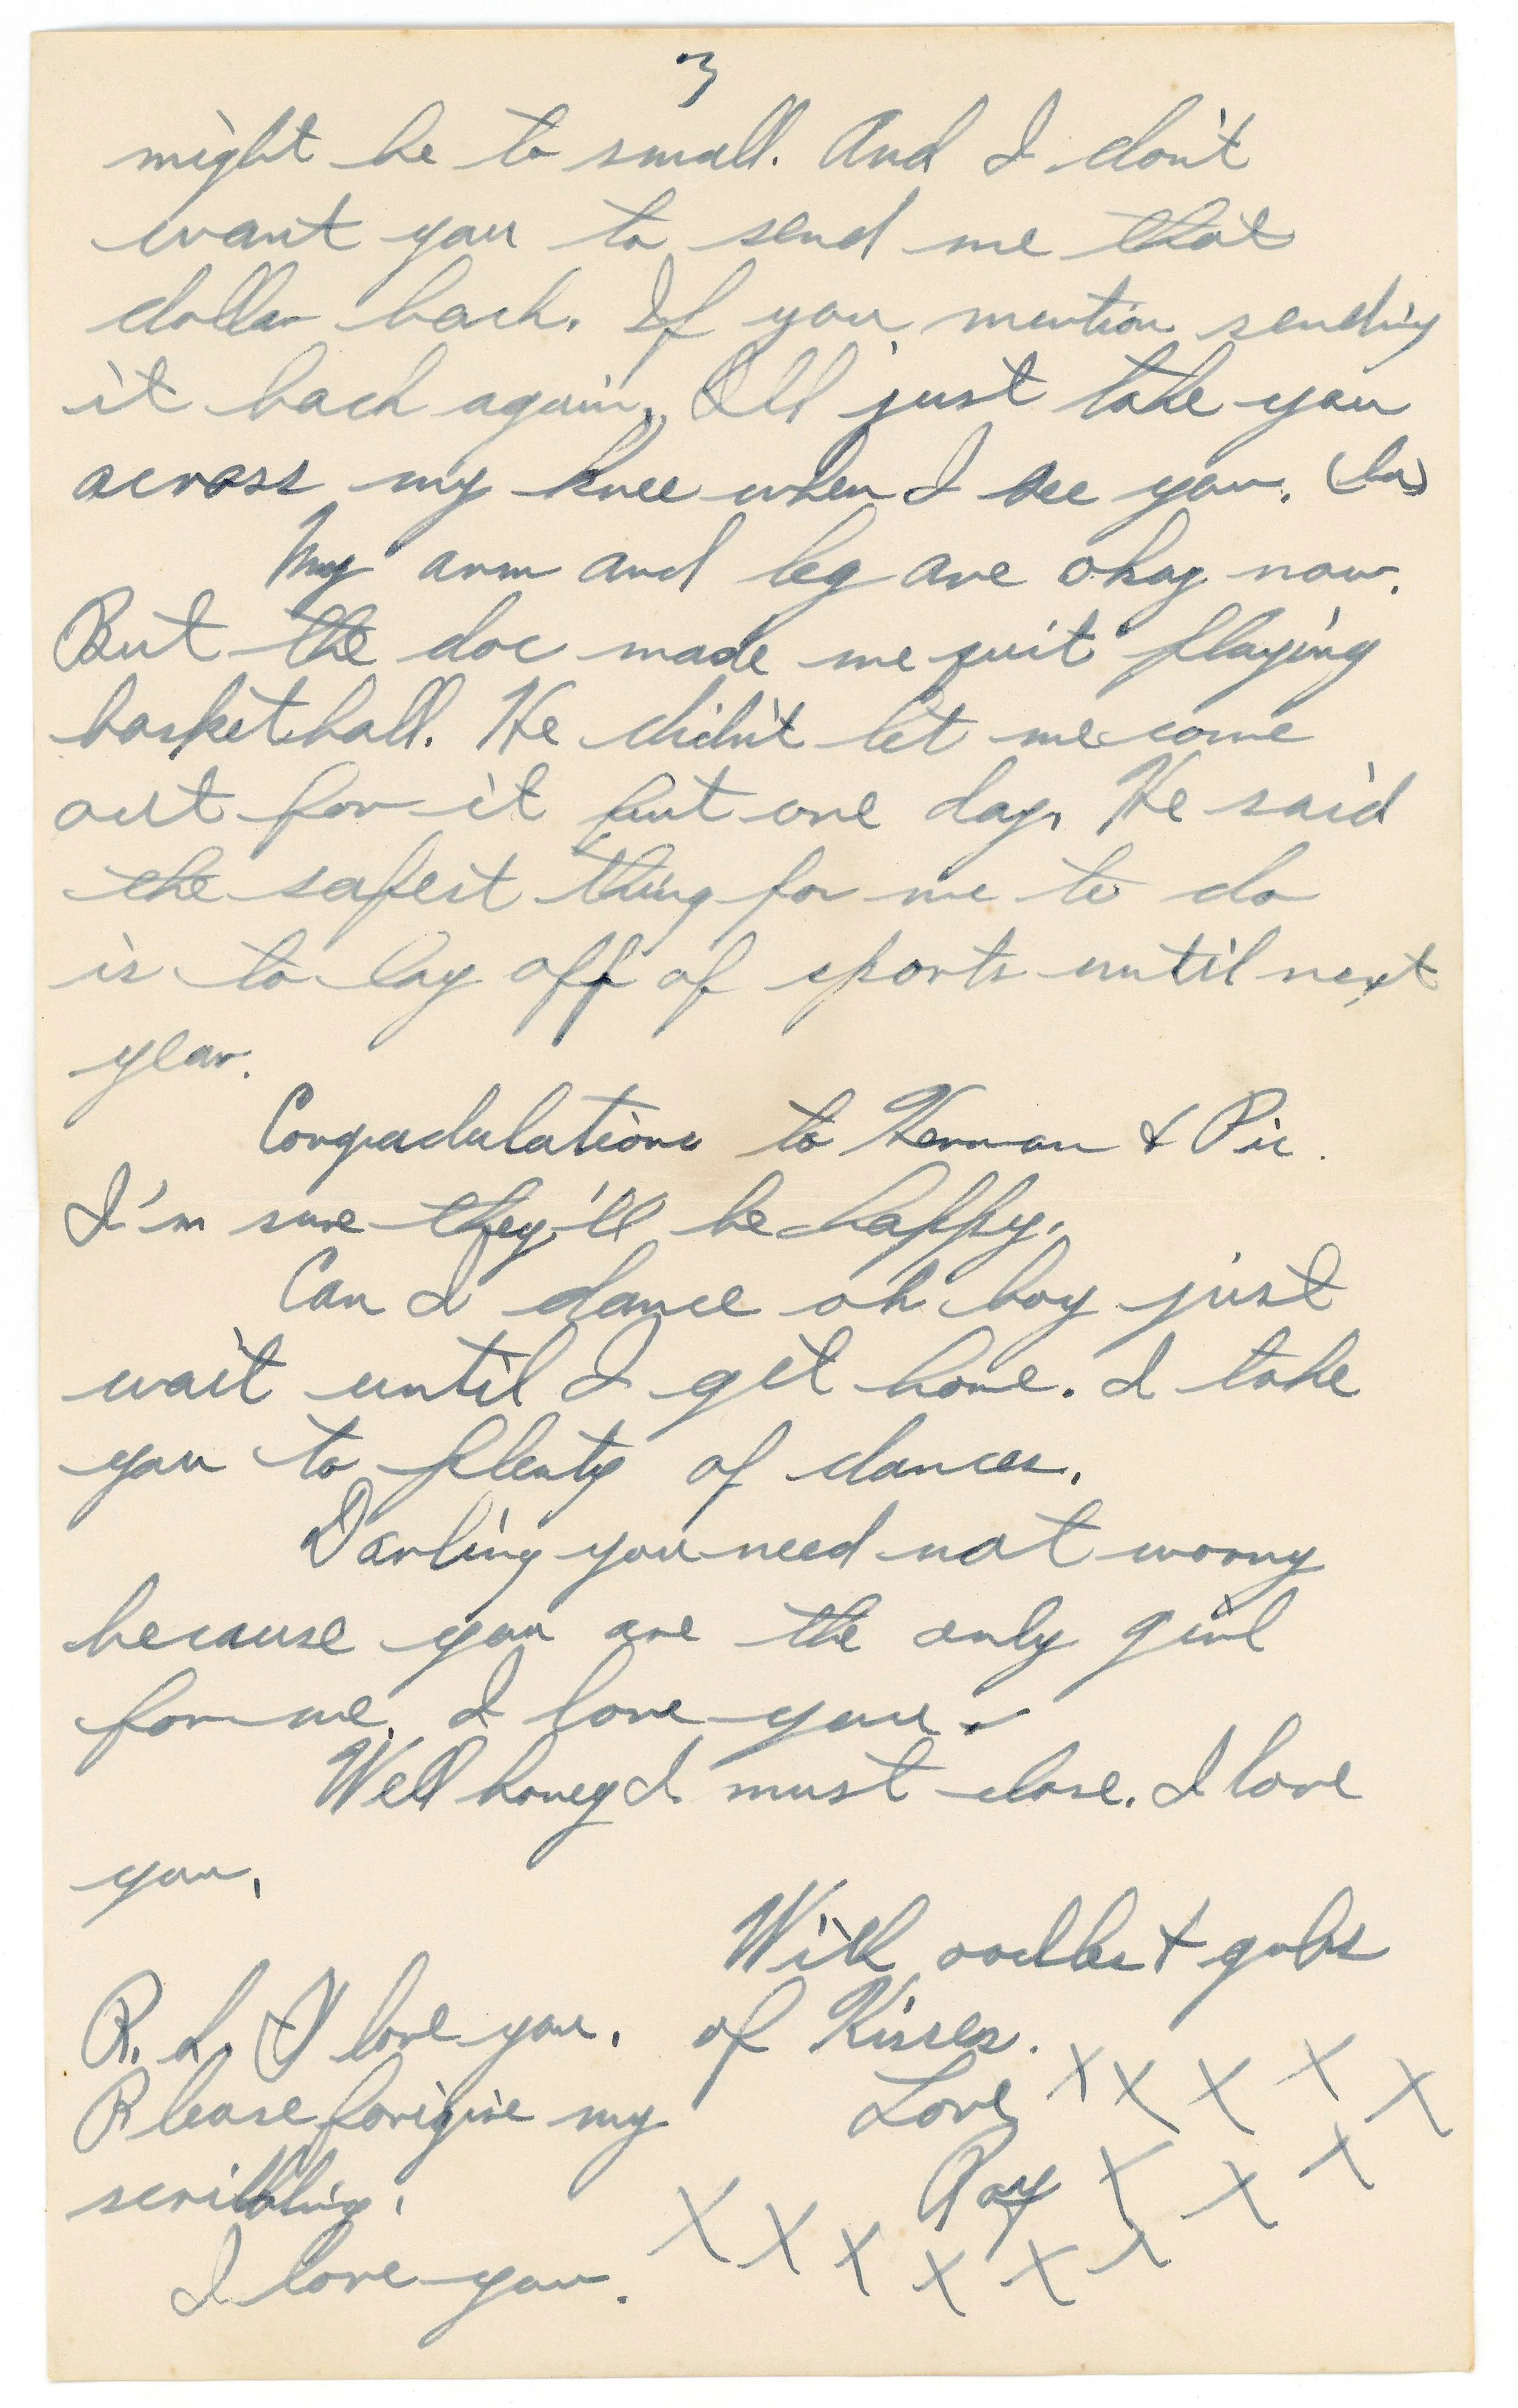 3
might be to small. And I don't
want you to send me that
dollar back. If you mention sending
it back again, I'll just take you
across my knee when I see you. (ha)
My arm and leg are okay now.
But the doc made me quit playing
basketball. He didn't let me come
out for it but one day. He said
the safest thing for me to do
is to lay off of sports until next
year.
Congradulations to Herman & Pic.
I'm sure they'll be happy.
Can I dance oh boy just
wait until I get home. I take
you to plenty of dances.
Darling you need not worry
because you are the only girl
for me. I love you.
Well honey I must close. I love
you.
With oodles & gobs
of Kisses.
Love x x x x x
Ray x x x
x x x x x x
P.S. I love you.
Please forigive my
scribbling.
I love you.